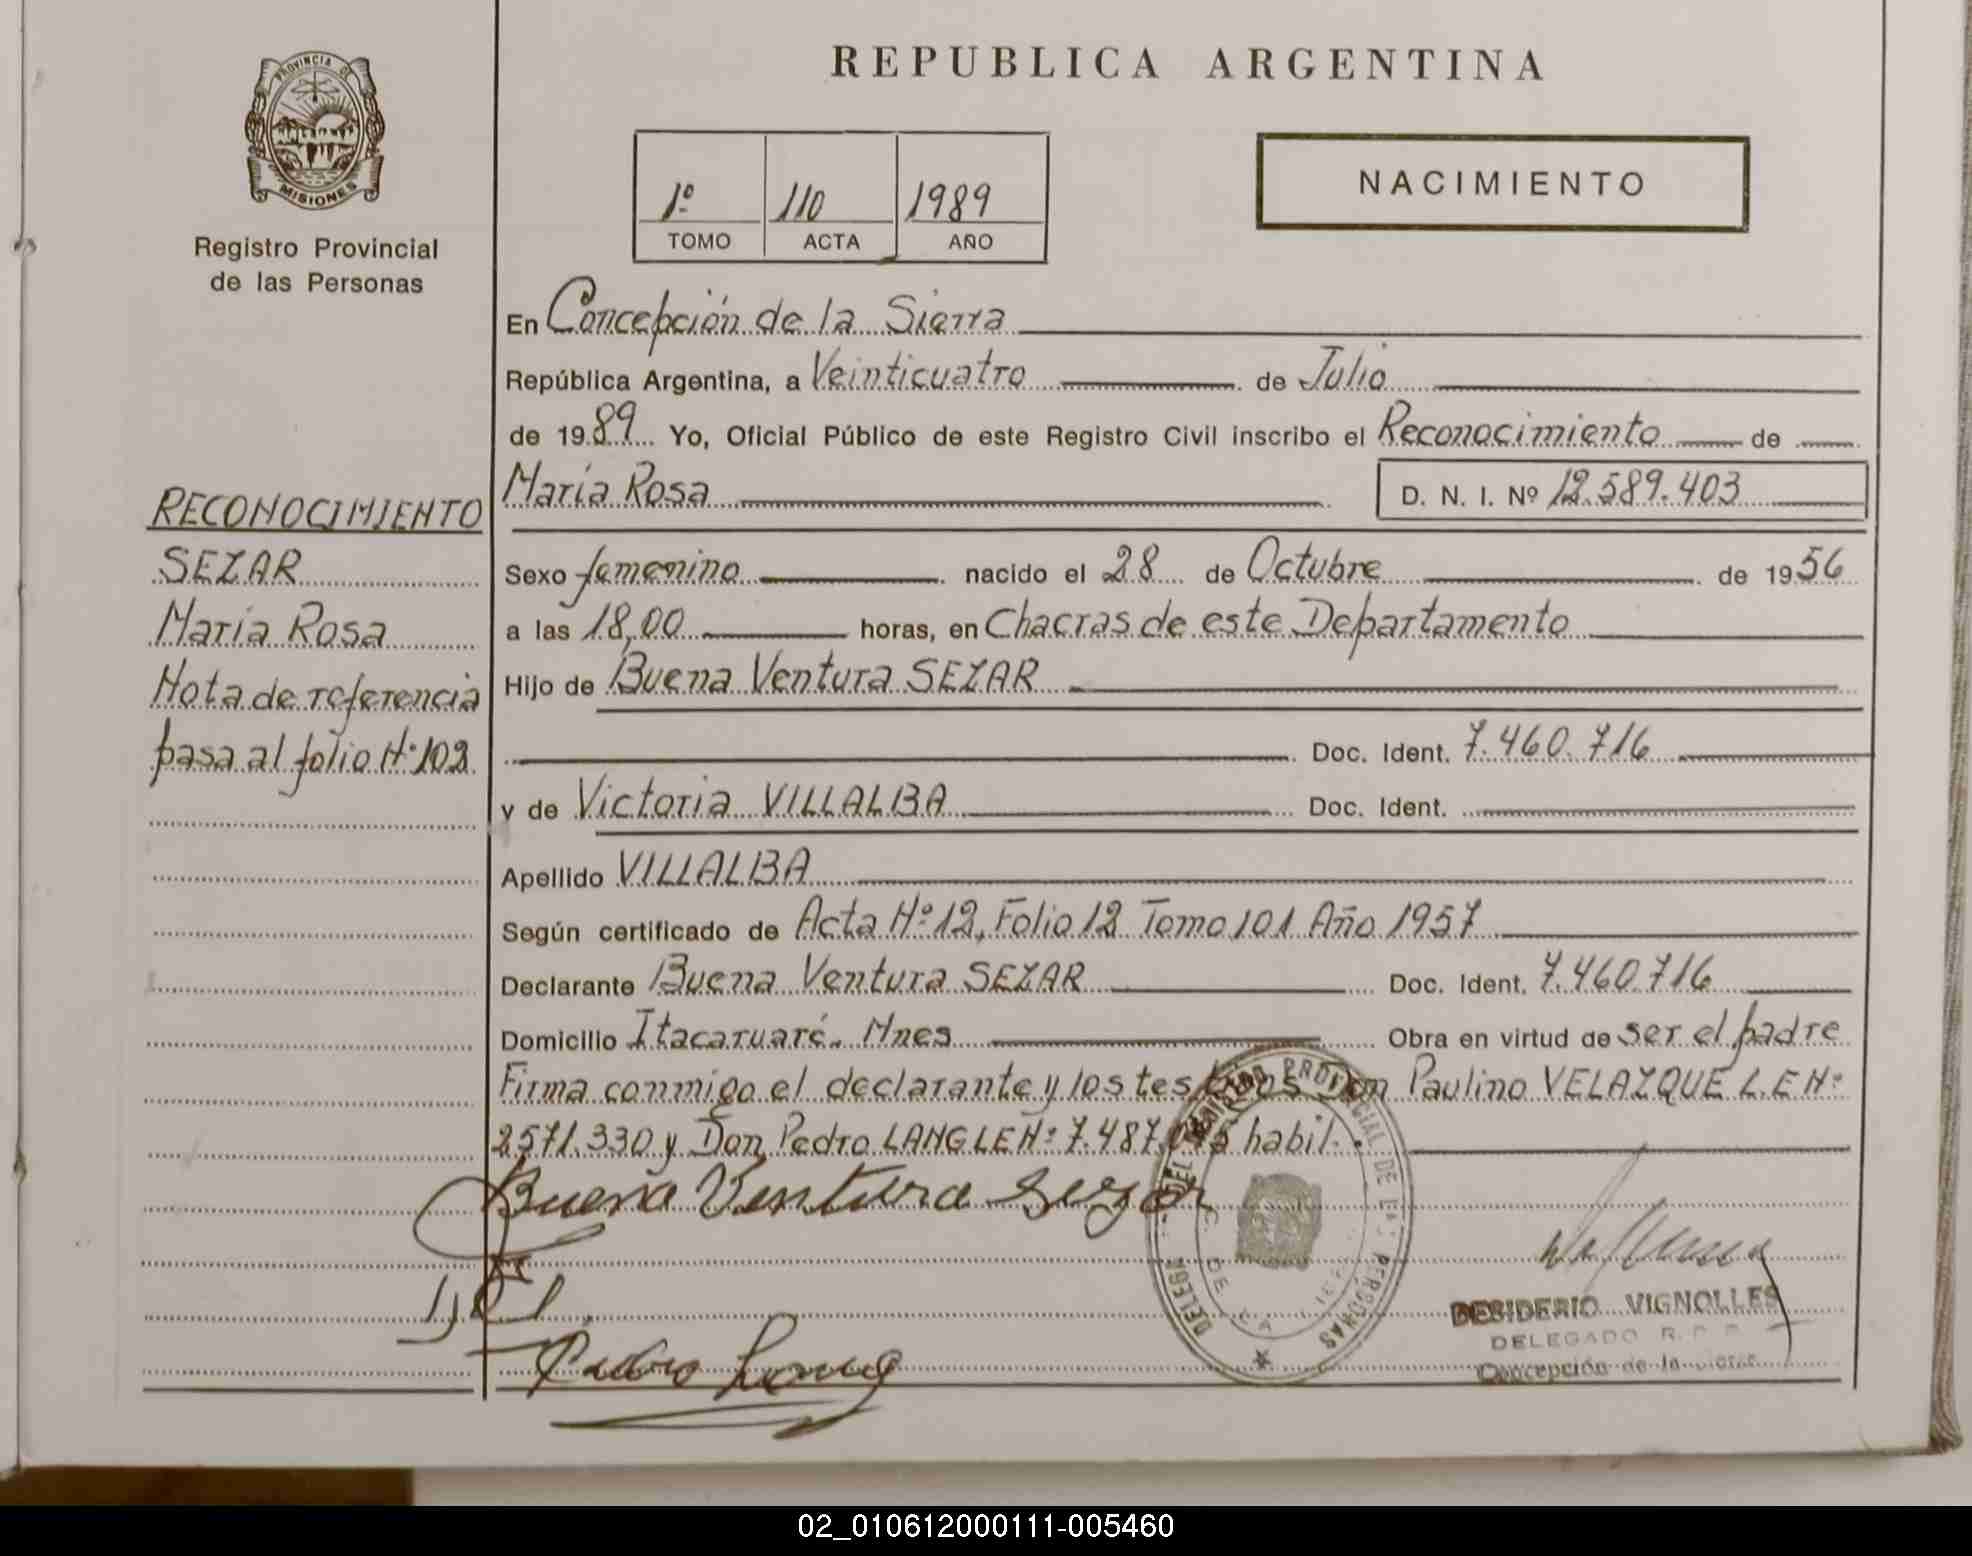 PROVINCIA DE
MISIONES
Registro Provincial
de las Personas
REPUBLICA ARGENTINA
1º 110 1989
TOMO ACTA AÑO
NACIMIENTO
En Concepción de la Sierra
República Argentina, a Veinticuatro de Julio
de 1989 Yo, Oficial Público de este Registro Civil inscribo el Reconocimiento de
María Rosa D. N. I. Nº 12.589.403
Sexo femenino nacido el 28 de Octubre de 1956
a las 18,00 horas, en Chacras de este Departamento
Hijo de Buena Ventura SEZAR
Doc. Ident. 7.460.716
y de Victoria VILLALBA Doc. Ident.
Apellido VILLALBA
Según certificado de Acta Nº 12, Folio 12 Tomo 101 Año 1957
Declarante Buena Ventura SEZAR Doc. Ident. 7.460.716
Domicilio Itacaruaré. Mnes Obra en virtud de ser el padre
Firma conmigo el declarante y los testigos Don Paulino VELAZQUE L.E Nº
2571.330 y Don Pedro LANG LE Nº 7.487. habil.
RECONOCIMIENTO
SEZAR
María Rosa
Nota de referencia
pasa al folio Nº 102
Buena Ventura Sezar
Pedro Lang
PROVINCIAL DE LAS PERSONAS
DESIDERIO VIGNOLLES
DELEGADO R. P. P.
Concepción de la Sierra
02_010612000111-005460